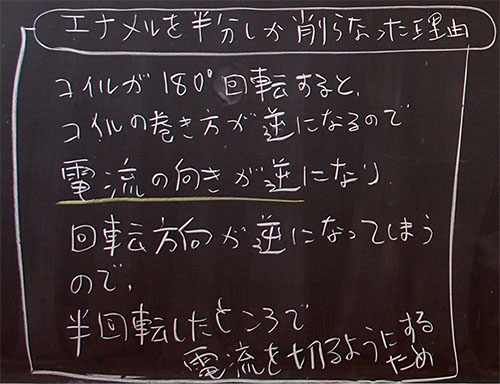 エナメルを半分しか削らなった理由
コイルが180°回転すると、
コイルの巻き方が逆になるので
電流の向きが逆になり
回転方向が逆になってしまう
ので、
半回転したところで
電流を切るようにする
ため